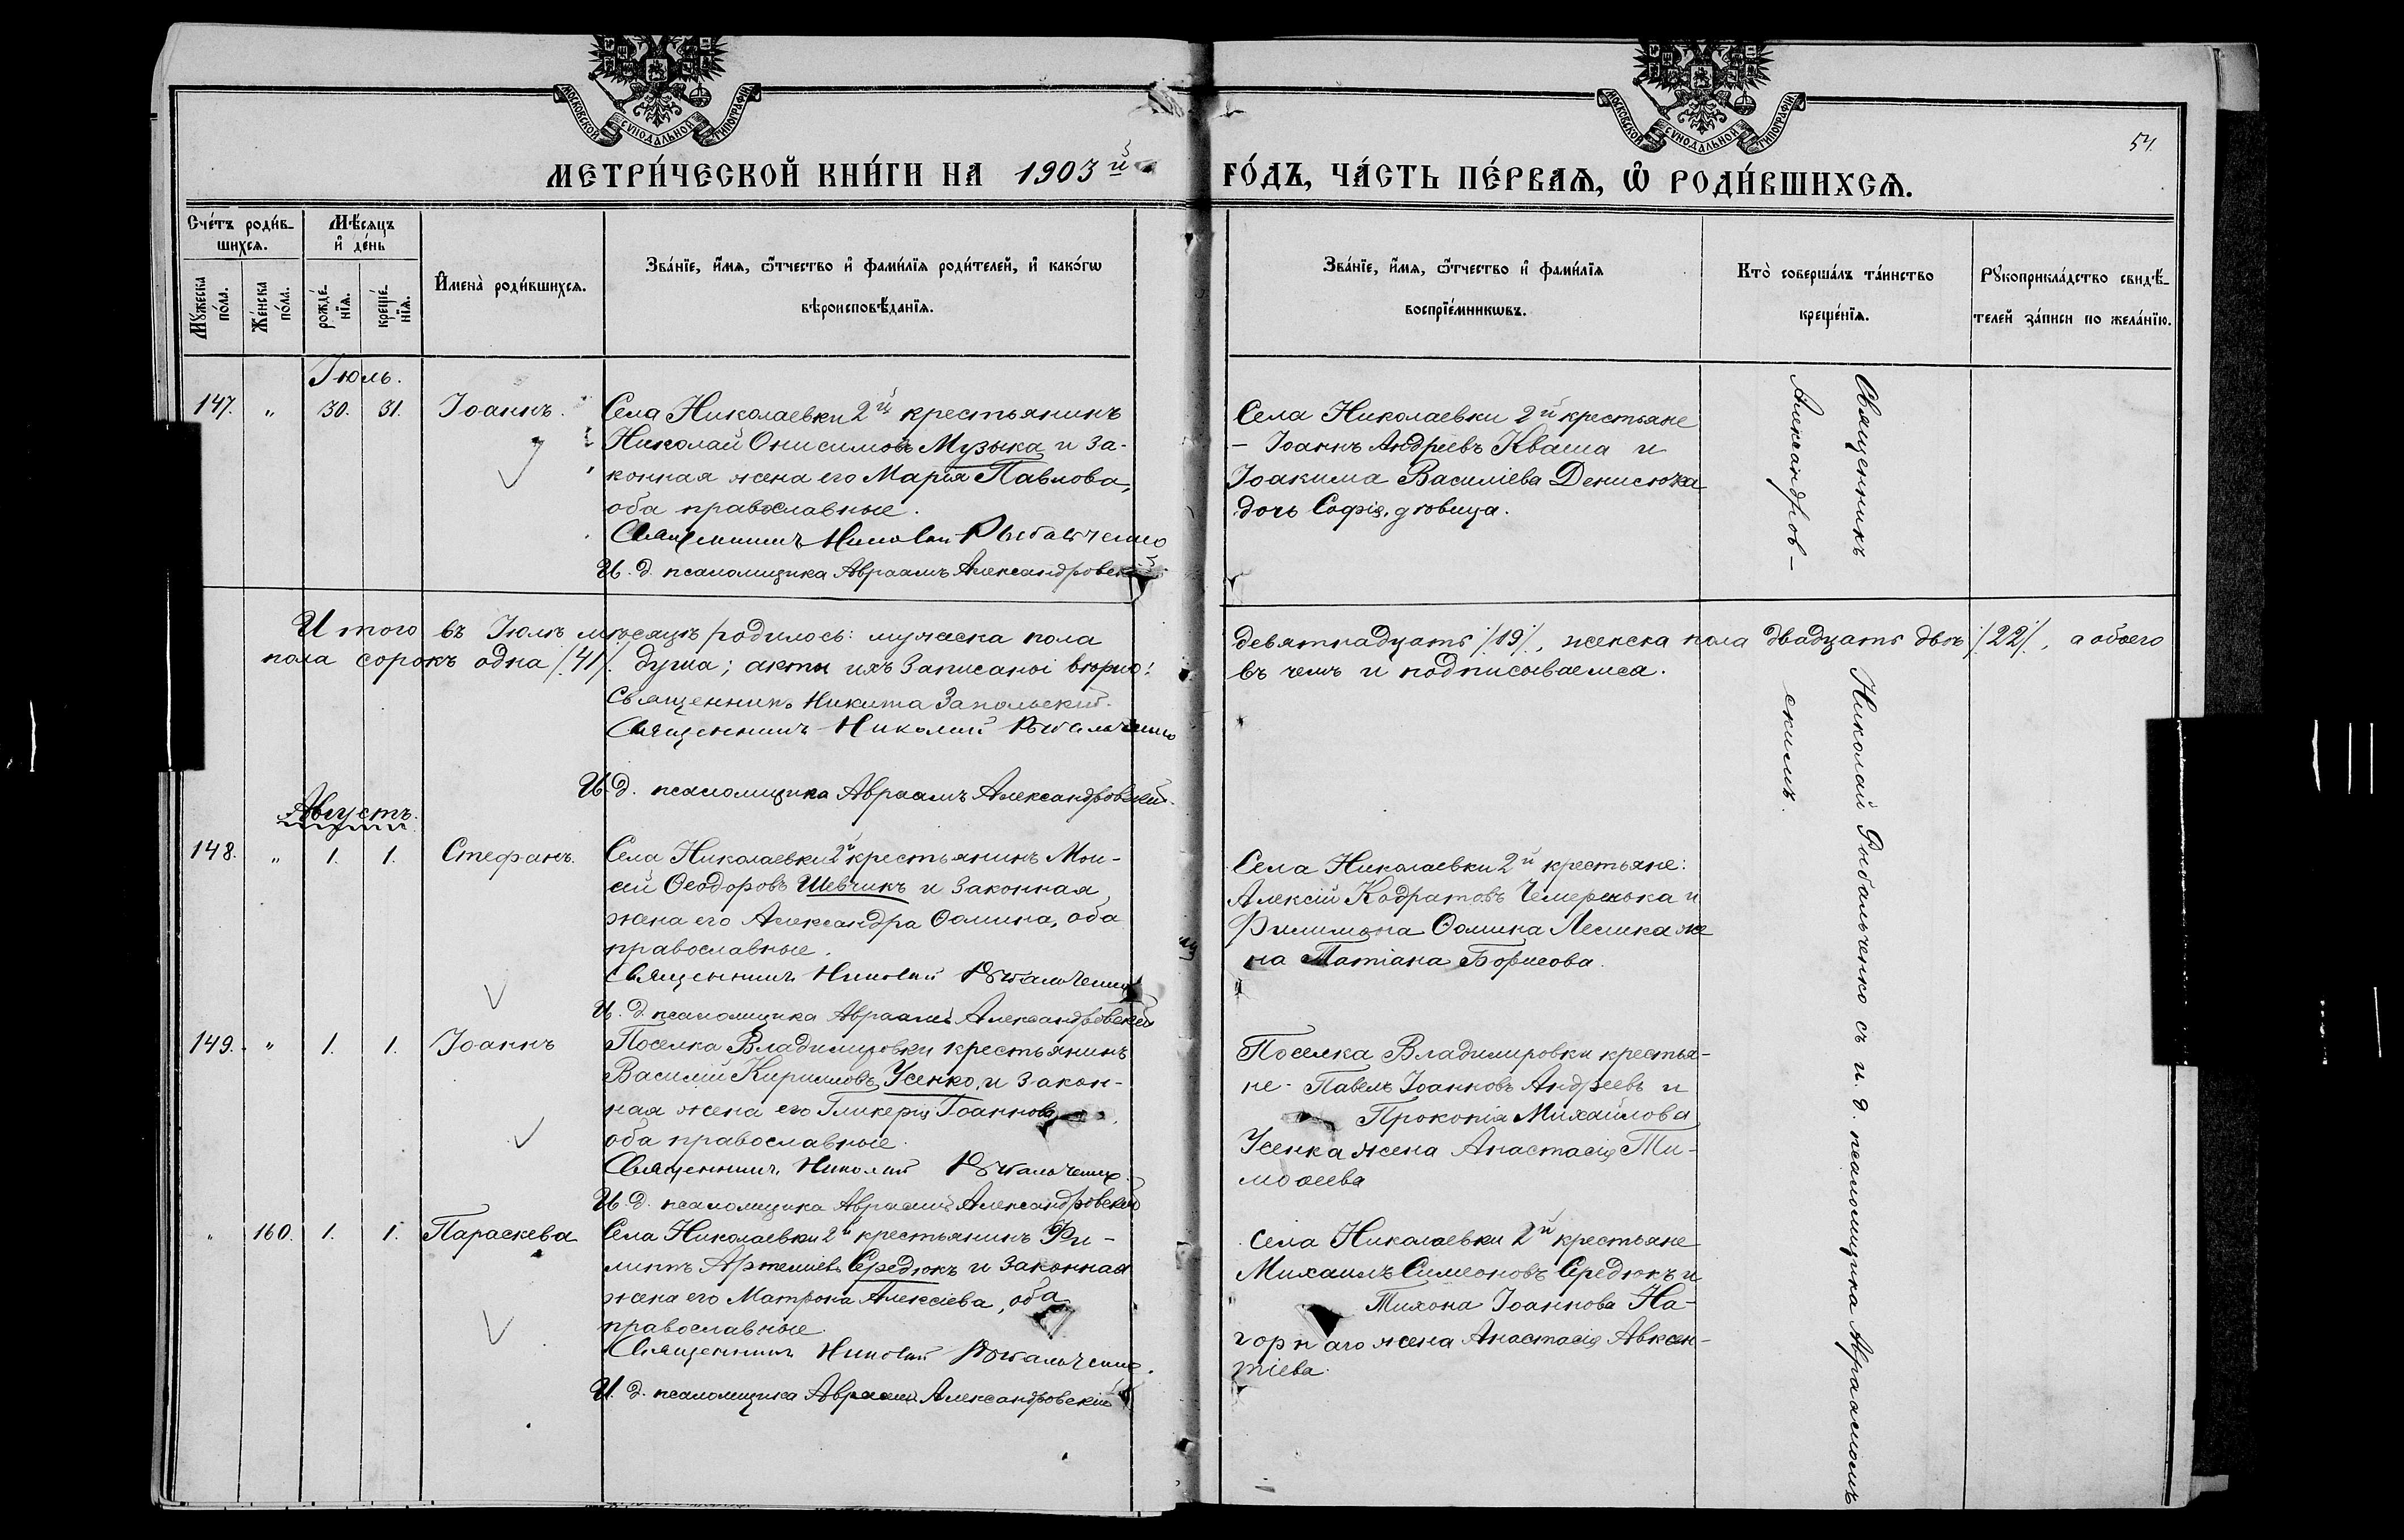 МОСКОВСКОЙ СѴНОДАЛЬНОЙ ТИПОГРАФІИ.
МОСКОВСКОЙ СѴНОДАЛЬНОЙ ТИПОГРАФІИ.
54.
МЕТРИ́ЧЕСКОЙ КНИ́ГИ НА 1903й
ГО́ДЪ, ЧА́СТЬ ПЕ́РВАѦ, Ѡ҆ РОДИ́ВШИХСѦ.
Сче́тъ роди́в-
шихсѧ.
Мѣ́сяцъ
и҆ де́нь
Мꙋ́жеска
по́ла.
Же́нска
по́ла.
рожде́-
нїѧ.
креще́-
нїѧ.
И҆мена̀ роди́вшихсѧ.
Зва́нїе, и҆́мѧ, ѻ҆́тчество и҆ фами́лїѧ роди́телей, и҆ како́гѡ
вѣроисповѣ́данїѧ.
Зва́нїе, и҆́мѧ, ѻ҆́тчество и҆ фами́лїѧ
воспрїе́мникѡвъ.
Кто̀ соверша́лъ та́инство
креще́нїѧ.
Рꙋкоприкла́дство свидѣ́-
телей за́писи по жела́нїю.
Іюль.
147. " 30. 31. Іоаннъ.
Села Николаевки 2й крестьянинъ
Николай Онисимовъ Музыка и за-
конная жена его Марія Павлова,
оба православные.
Священникъ Николай Рыбальченко
И. д. псаломщика Авраамъ Александровскій
Села Николаевки 2й крестьяне
– Іоаннъ Андреевъ Кваша и
Іоакима Василіева Денисюка
дочь Софія, дѣвица.
Священникъ Николай Рыбальченко съ и. д. псаломщика Авраамомъ
Александров-
скимъ.
Итого въ Іюлѣ мѣсяцѣ родилось: мужеска пола девятнадцать /19/, женска пола двадцать двѣ /22/, а обоего
пола сорокъ одна /41/. душа; акты ихъ записаны вѣрно: въ чемъ и подписываемся.
Священникъ Никита Запольскій.
Священникъ Николай Рыбальченко
И. д. псаломщика Авраамъ Александровскій.
Августъ.
148. " 1. 1. Стефанъ.
Села Николаевки 2й крестьянинъ Мои-
сей Ѳеодоровъ Шевчикъ и законная
жена его Александра Ѳомина, оба
православные.
Священникъ Николай Рыбальченко
И. д. псаломщика Авраамъ Александровскій
Села Николаевки 2й крестьяне:
Алексій Кодратовъ Чемеренька и
Филимона Ѳомина Лесика же
на Татіана Борисова.
149. " 1. 1. Іоаннъ
Поселка Владимировки крестьянинъ
Василій Кирилловъ Усенко, и закон-
ная жена его Гликерія Іоаннова,
оба православные.
Священникъ Николай Рыбальченко.
И. д. псаломщика Авраамъ Александровскій
Поселка Владимировки крестья-
не – Павелъ Іоанновъ Андреевъ и
Прокопія Михайлова
Усенка жена Анастасія Ти-
моѳеева
" 160. 1. 1. Параскева
Села Николаевки 2й крестьянинъ Фи-
липпъ Артеміевъ Середюкъ и законная
жена его Матрона Алексіева, оба
православные.
Священникъ Николай Рыбальченко.
И. д. псаломщика Авраамъ Александровскій
Села Николаевки 2й крестьяне
Михаилъ Симеоновъ Середюкъ и
Тихона Іоаннова На-
горнаго жена Анастасія Авксен-
тіева.